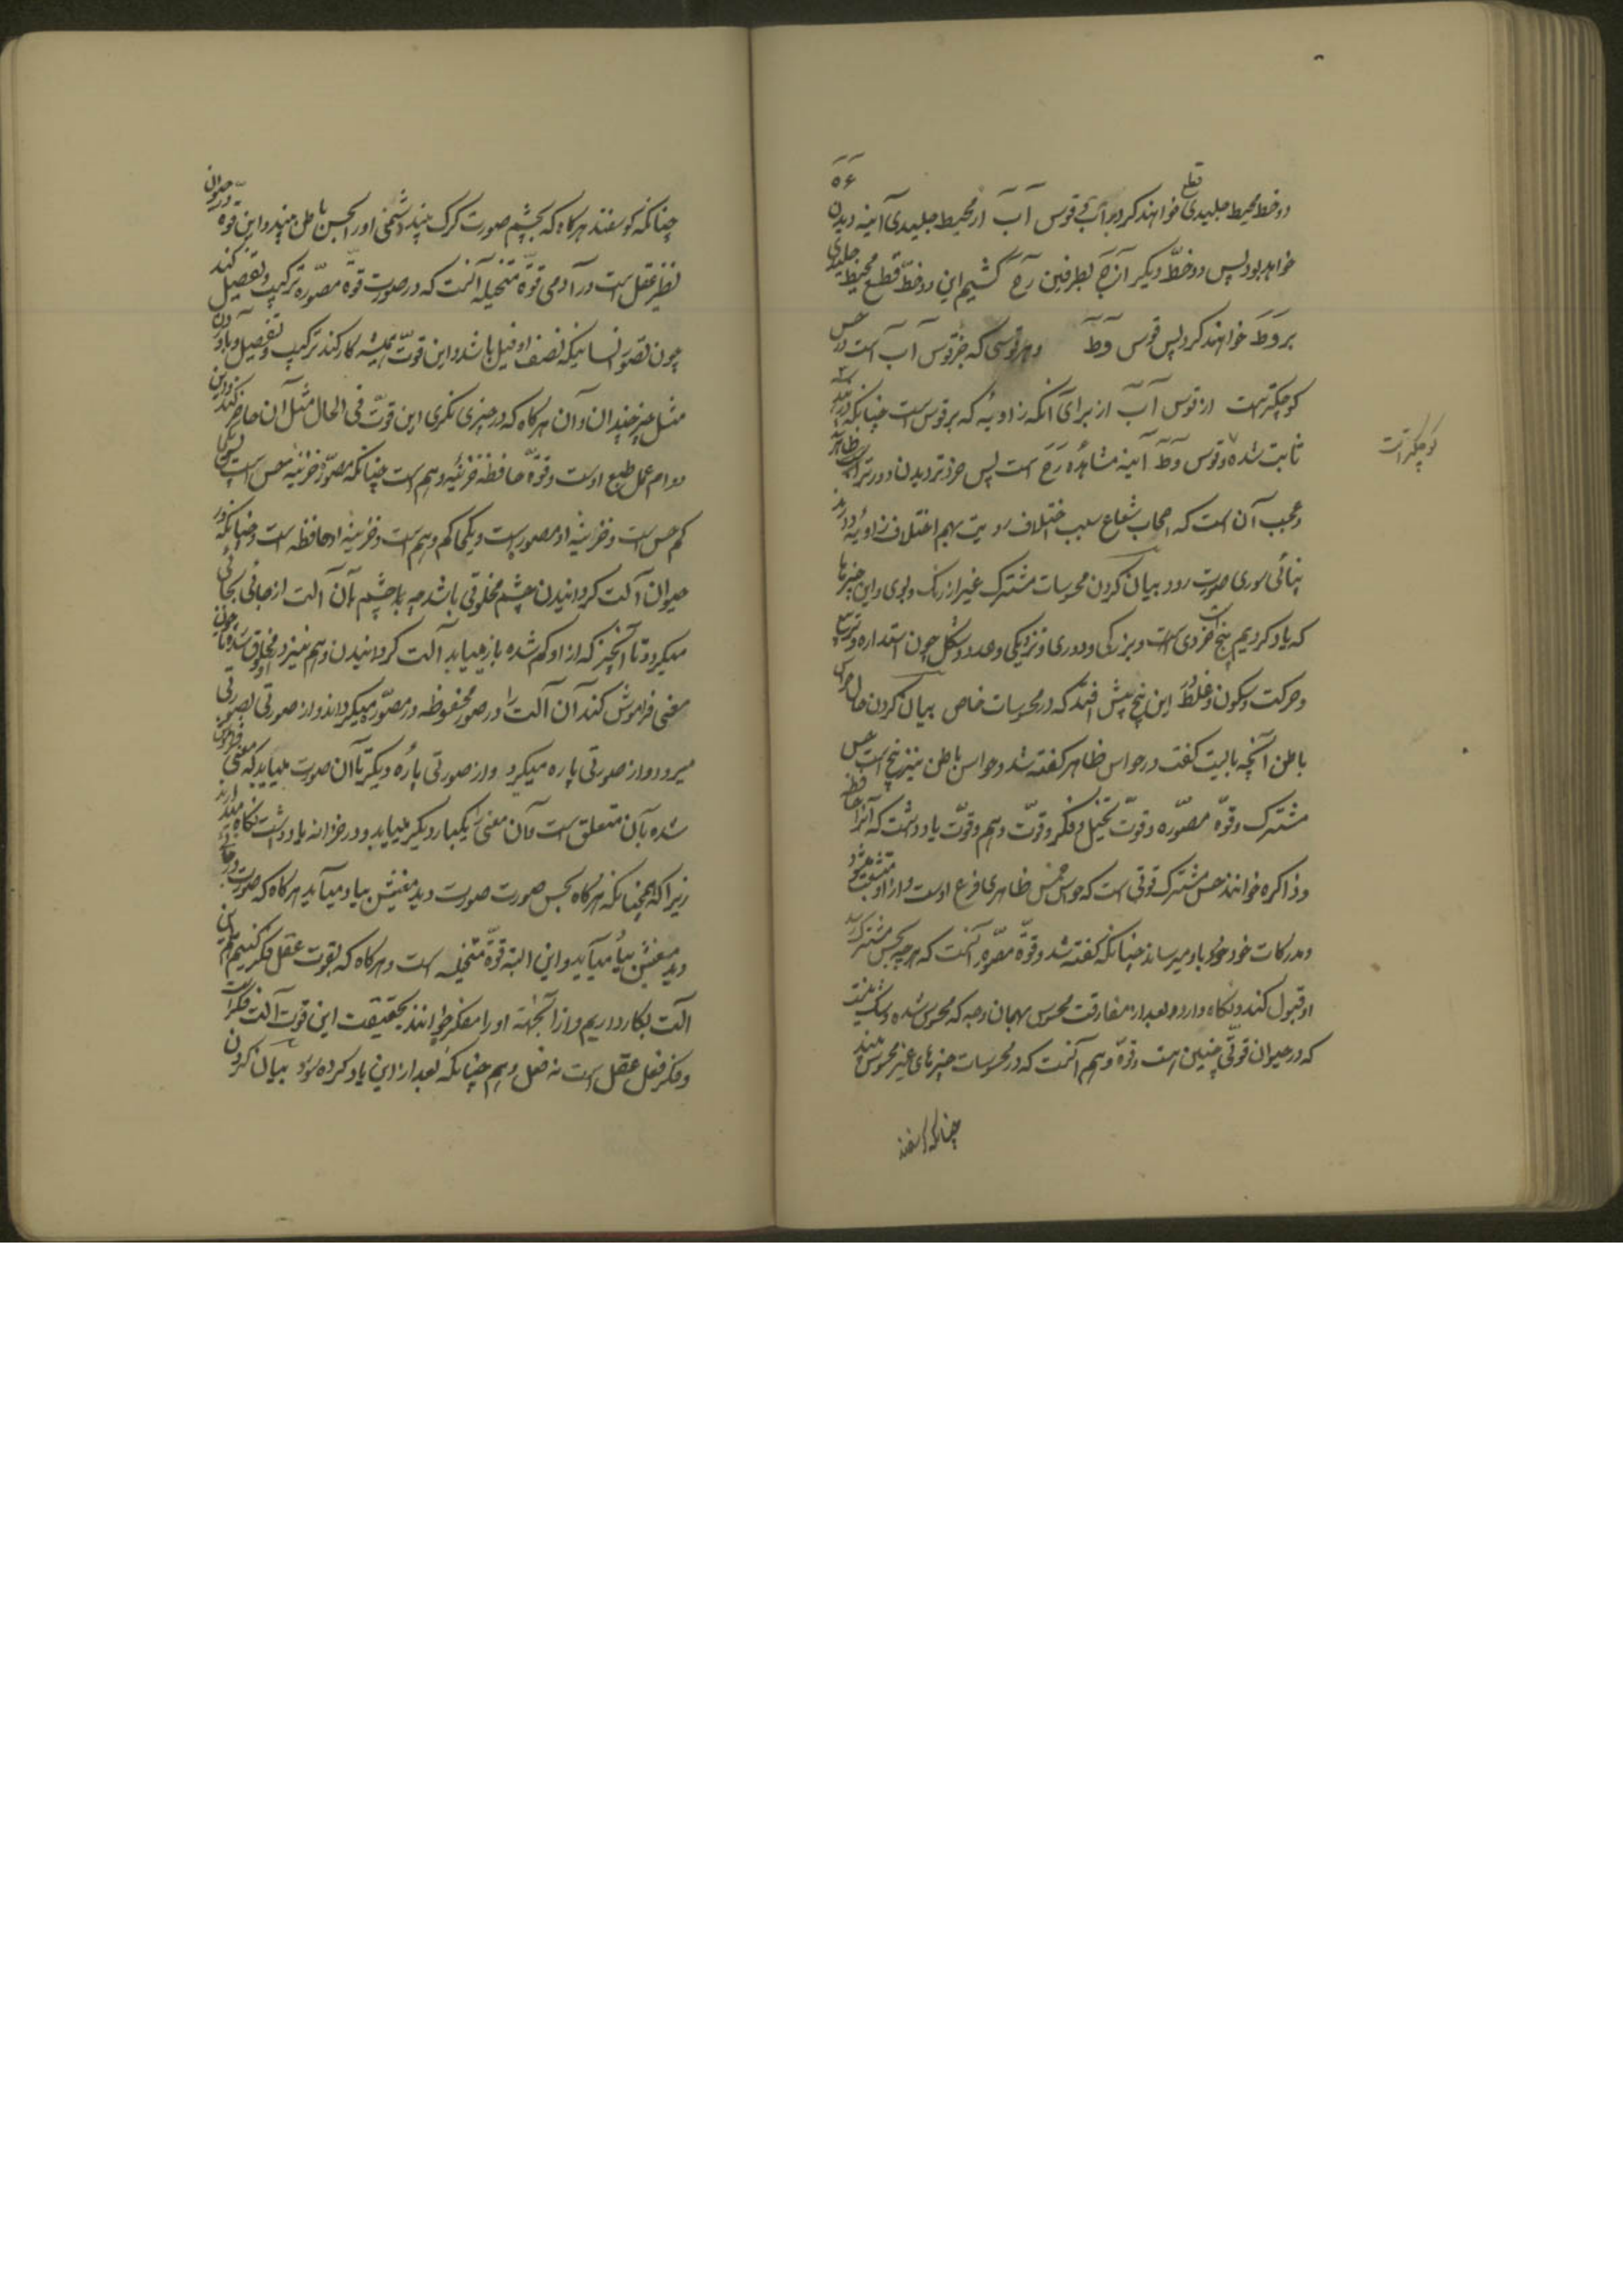 ۵۶
دو خط محیط جلیدی قطع خواهند کرد بر آب قوس آب از محیط جلیدی آینه دیدن
خواهد بود پس دو خطّ دیگر از ح بطرفین رح کشیم این دو خطّ قطع محیط جلیدی
بر وط خواهند کرد پس قوس وط و هر قوسی که جز قوس آب است در حس
کوچکتر است از قوس آب از برای آنکه زاویه که بر قوس است چنانکه
ثابت شده و قوس وط آینه مشاهده رح است پس خردتر دیدن دورتر است
و عجب آن است که اصحاب شعاع سبب اختلاف رویت بهم اختلاف زاویه دارند
بیان کردن محسوسات مشترک غیر از رنگ و بوی و این چیزها
که یاد کردیم پنج است خردی و بزرگی و دوری و نزدیکی و عدد و شکل چون استداره و تربیع
و حرکت و سکون و غلط در این پنج بیش افتد که در محسوسات خاص بیان کردن حال حواس
باطن آنچه بایست گفت در حواس ظاهر گفته شد و حواس باطن نیز پنج است حس
مشترک و قوّه مصوّره و قوّت تخیّل و فکر و قوّت وهم و قوّت یادداشت که آنرا حافظه
و ذاکره خوانند حس مشترک قوتی است که حواس خمس ظاهری فرع اوست و از او منشعب میشود
و مدرکات خود باو میرساند چنانکه گفته شد و قوّه مصوّره آنست که هر چه بحس مشترک رسد
او قبول کند و نگاه دارد و بعد از مفارقت محسوس بهمان وجه که محسوس شده و شک نیست
که در حیوان قوّتی چنین هست و قوّه وهم آنست که در محسوسات چیزهای غیر محسوس بیند
چنانکه گوسفند
کوچکتر است
چنانکه گوسفند هرگاه که بچشم صورت گرگ بیند دشمنی او را بحس باطن بیند و این قوّه در حیوان
نظیر عقل است در آدمی قوّه متخیله آنست که در صورت قوّه مصوّره ترکیب و تفصیل کند
چون تصوّر انسانیکه نصف او فیل باشد و این قوّت همیشه کار کند ترکیب و تفصیل و یاد آوردن
مثل چیز چندان و آن هرگاه که در چیزی نگری این قوّت فی الحال مثل آن حاضر کند و این
دوام عمل طبع اوست و قوّه حافظه خزینه وهم است چنانکه مصوّره خزینه حس است پس یکی
حاکم حس است و خزینه او مصوره است و یکی حاکم وهم است و خزینه او حافظه است و چنانکه در
حیوان آلت گردانیدن چشم مخلوقی باشد چه با چشم بآن آلت از جائی بجائی
میگردد تا آنچیز که از او گم شده باز میابد آلت گردانیدن وهم نیز در او مخلوق شد تا چون
معنی فراموش کند آن آلت را در صور محفوظه در مصوّره میگرداند و از صورتی بصورتی
میرود و از صورتی پاره میگیرد و از صورتی پاره دیگر تا آن صورت بیابد که معنی فراموش
شده بآن متعلق است و آن معنی را یکبار دیگر بیابد و در خزانه یادداشت نگاه دارد
زیرا که همچنانکه هرگاه بحس صورت صورت دید معنیش بیاد میآید هرگاه که صورت در
دید معنیش بیاد میآید و این البته قوّه متخیله است و هرگاه که بقوت عقل فکر کنیم هم این
آلت بکار داریم و از آنجهة او را مفکره خوانند بحقیقت این قوت آلت فکر است
و فکر فعل عقل است نه فعل وهم چنانکه بعد از این یاد کرده شود بیان کردن